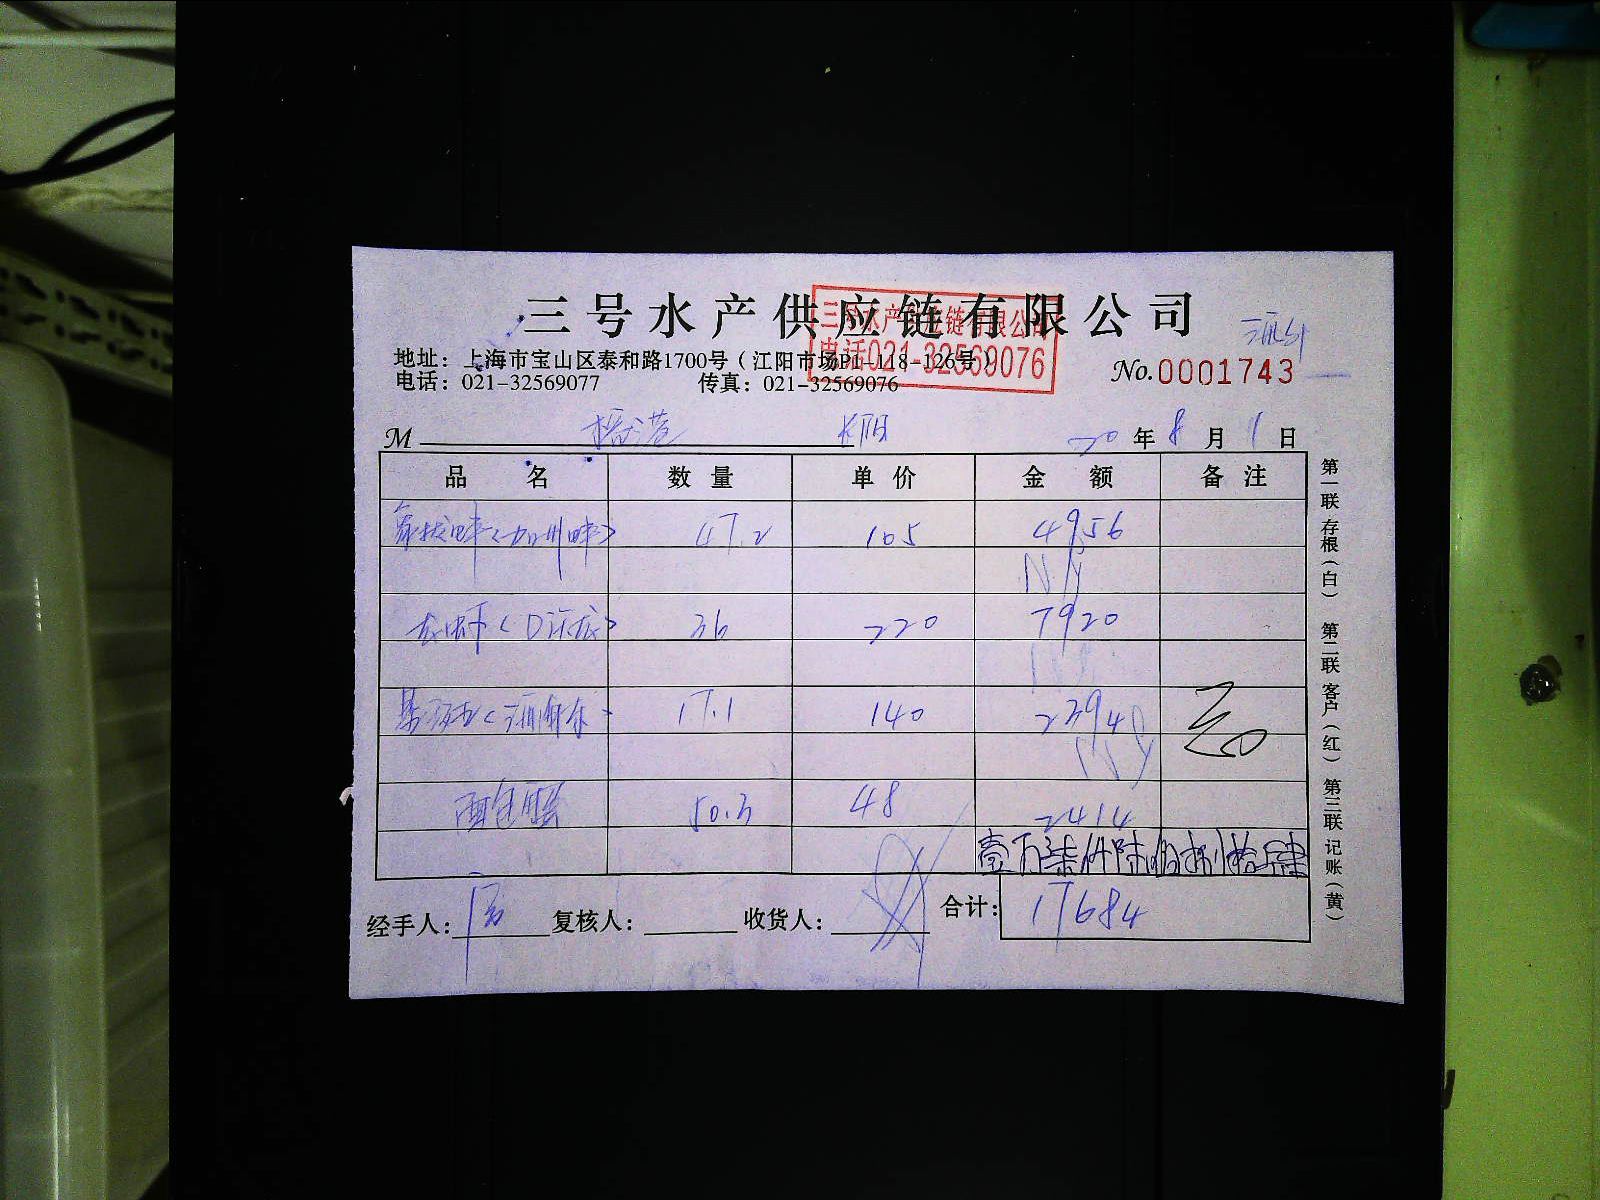 三号水产供应链有限公司
三号水产供应链有限公司
电话021-32569076
地址：上海市宝山区泰和路1700号（江阳市场P1-118-126号）
电话：021-32569077 传真：021-32569076
No.0001743
M 20年8月1日
品名 数量 单价 金额 备注
47.2 105 4956
36 220 7920
17.1 140 2394
面包蟹 50.3 48 2414
壹万柒仟陆佰捌拾肆
经手人： 复核人： 收货人： 合计：17684
第一联存根（白）
第二联客户（红）
第三联记账（黄）